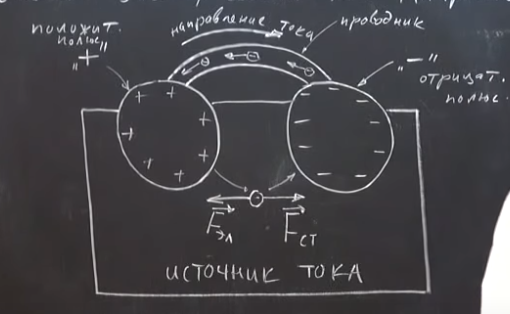 положит.
полюс
„+"
направление тока
проводник
„−"
отрицат.
полюс.
+ +
+ +
+ +
+
− −
− −
− −
− −
− − −
−
F эл
F ст
источник тока